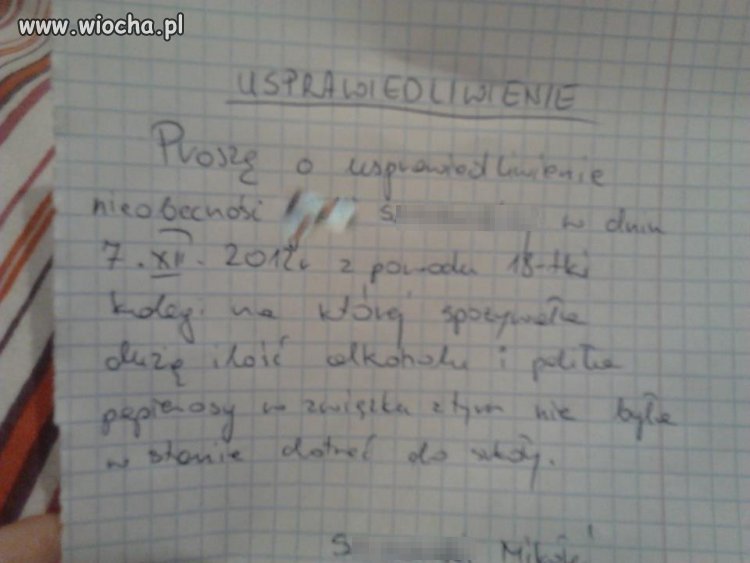 www.wiocha.pl
USPRAWIEDLIWIENIE
Proszę o usprawiedliwienie
nieobecności S w dniu
7.XII.2012r z powodu 18-tki
kolegi na której spożywała
dużą ilość alkoholu i paliła
papierosy w związku z tym nie była
w stanie dotrzeć do szkoły.
S Mikołaj